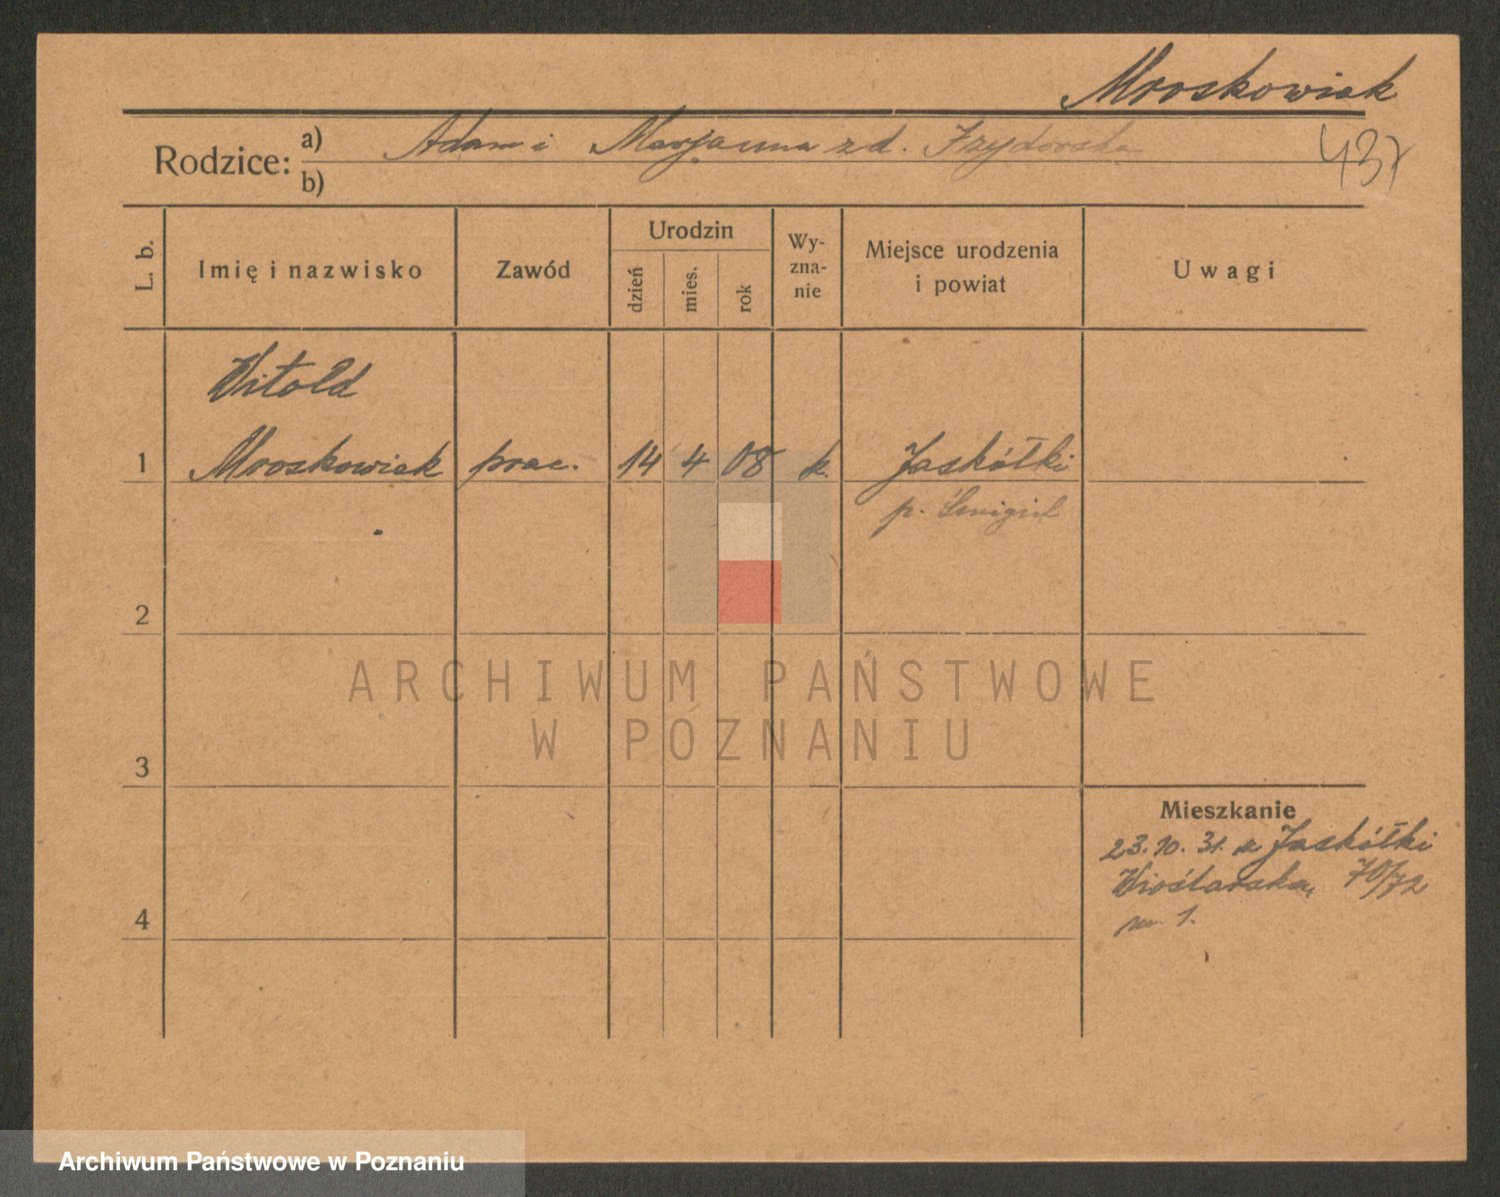 Mroskowiak
Rodzice: a) Adam i Marjanna z d. Izydorska
b)
437
L. b.
Imię i nazwisko
Zawód
Urodzin
dzień
mies.
rok
Wy-
zna-
nie
Miejsce urodzenia
i powiat
Uwagi
Witold
1 Mroskowiak prac. 14 4 08 k. Jaskółki
p. Śmigiel
2
3
4
Mieszkanie
23.10.31. z Jaskółki
Wioślarska, 70/72
m. 1.
ARCHIWUM PAŃSTWOWE
W POZNANIU
Archiwum Państwowe w Poznaniu